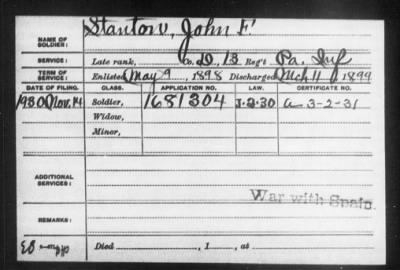 NAME OF SOLDIER: Stanton, John F.
SERVICE: Late rank, Co. D, 13 Reg't Pa. Inf
TERM OF SERVICE: Enlisted May 9, 1898 Discharged Mch 11, 1899
DATE OF FILING. CLASS. APPLICATION NO. LAW. CERTIFICATE NO.
1930 Nov. 14 Soldier, 1681304 J.2.30 a 3-2-31
Widow,
Minor,
ADDITIONAL SERVICES:
War with Spain.
REMARKS:
Died , 1 , at